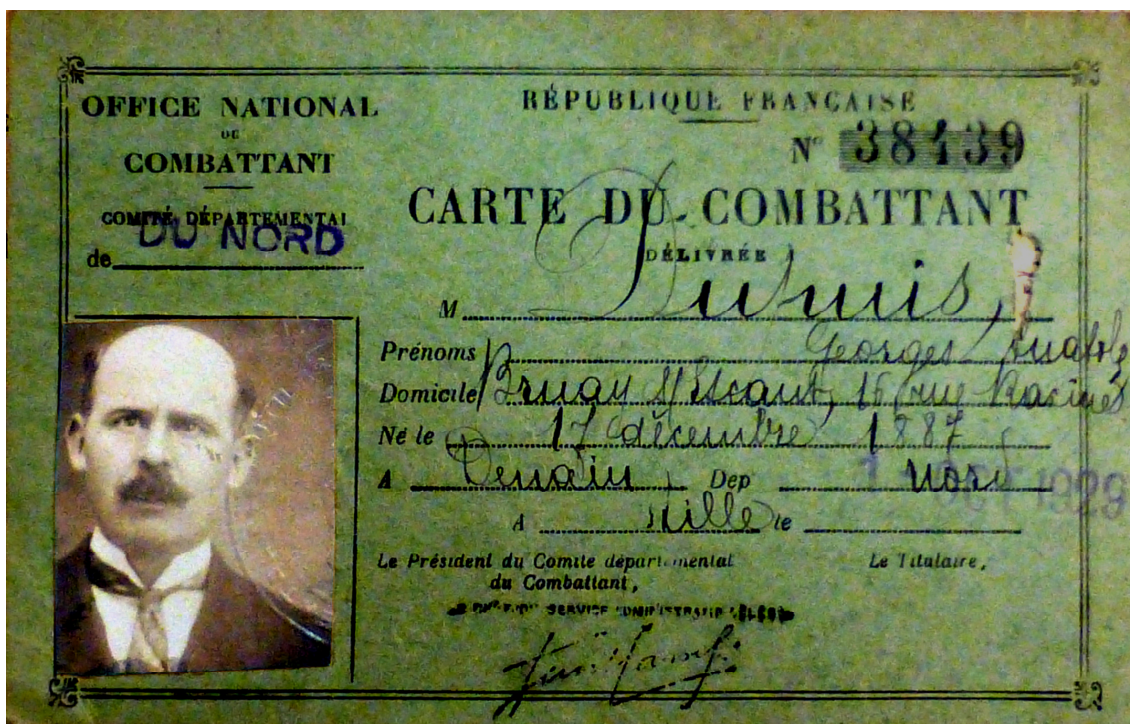 OFFICE NATIONAL
DU
COMBATTANT
COMITÉ DÉPARTEMENTAL
de DU NORD
RÉPUBLIQUE FRANÇAISE
N° 38439
CARTE DU COMBATTANT
DÉLIVRÉE A
M Dupuis,
Prénoms Georges Anatole
Domicile Bruay s/Escaut, 16 rue Racine
Né le 17 décembre 1887
A Denain Dep Nord
A Lille le 1 OCT 1929
Le Président du Comité départemental
du Combattant,
Le Titulaire,
SERVICE ADMINISTRATIF